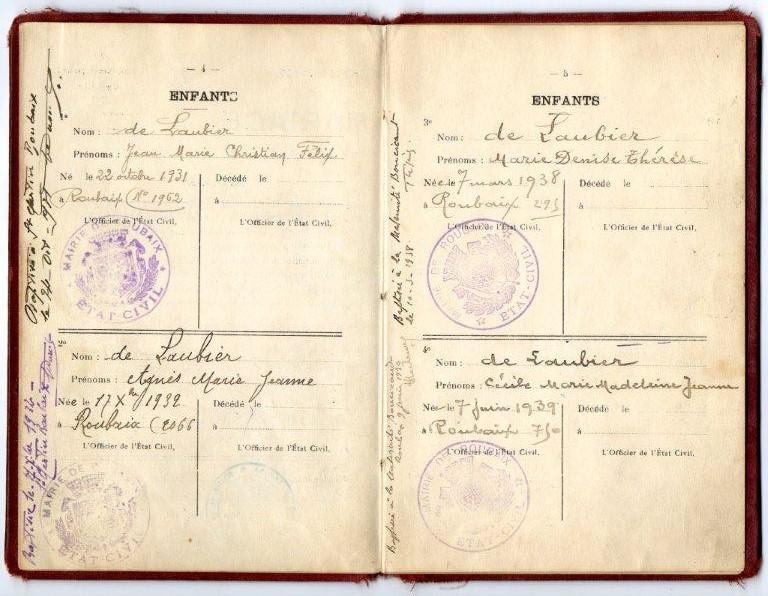 — 4 —
ENFANTS
Nom : de Laubier
Prénoms : Jean Marie Christian Félix
Né le 22 octobre 1931
Décédé le
à Roubaix (N° 1962
à
L'Officier de l'État Civil,
L'Officier de l'État Civil,
MAIRIE DE ROUBAIX
ETAT-CIVIL
2°
Nom : de Laubier
Prénoms : Agnès Marie Jeanne
Née le 17 Xbre 1932
Décédé le
à Roubaix (2066
à
L'Officier de l'État Civil,
L'Officier de l'État Civil,
MAIRIE DE
ETAT-CIVIL
— 5 —
ENFANTS
3°
Nom : de Laubier
Prénoms : Marie Denise Thérèse
Née le 7 mars 1938
Décédé le
à Roubaix 295
à
L'Officier de l'État Civil,
L'Officier de l'État Civil,
MAIRIE DE ROUBAIX
ETAT-CIVIL
4°
Nom : de Laubier
Prénoms : Cécile Marie Madeleine Jeanne
Née le 7 juin 1939
Décédé le
à Roubaix 750
à
L'Officier de l'État Civil,
L'Officier de l'État Civil,
MAIRIE DE ROUBAIX
ETAT-CIVIL
Baptisé à St Martin Roubaix
Baptisée à la Maternité Boucicaut
le 10-3-1938
Baptisée à la Maternité Boucicaut